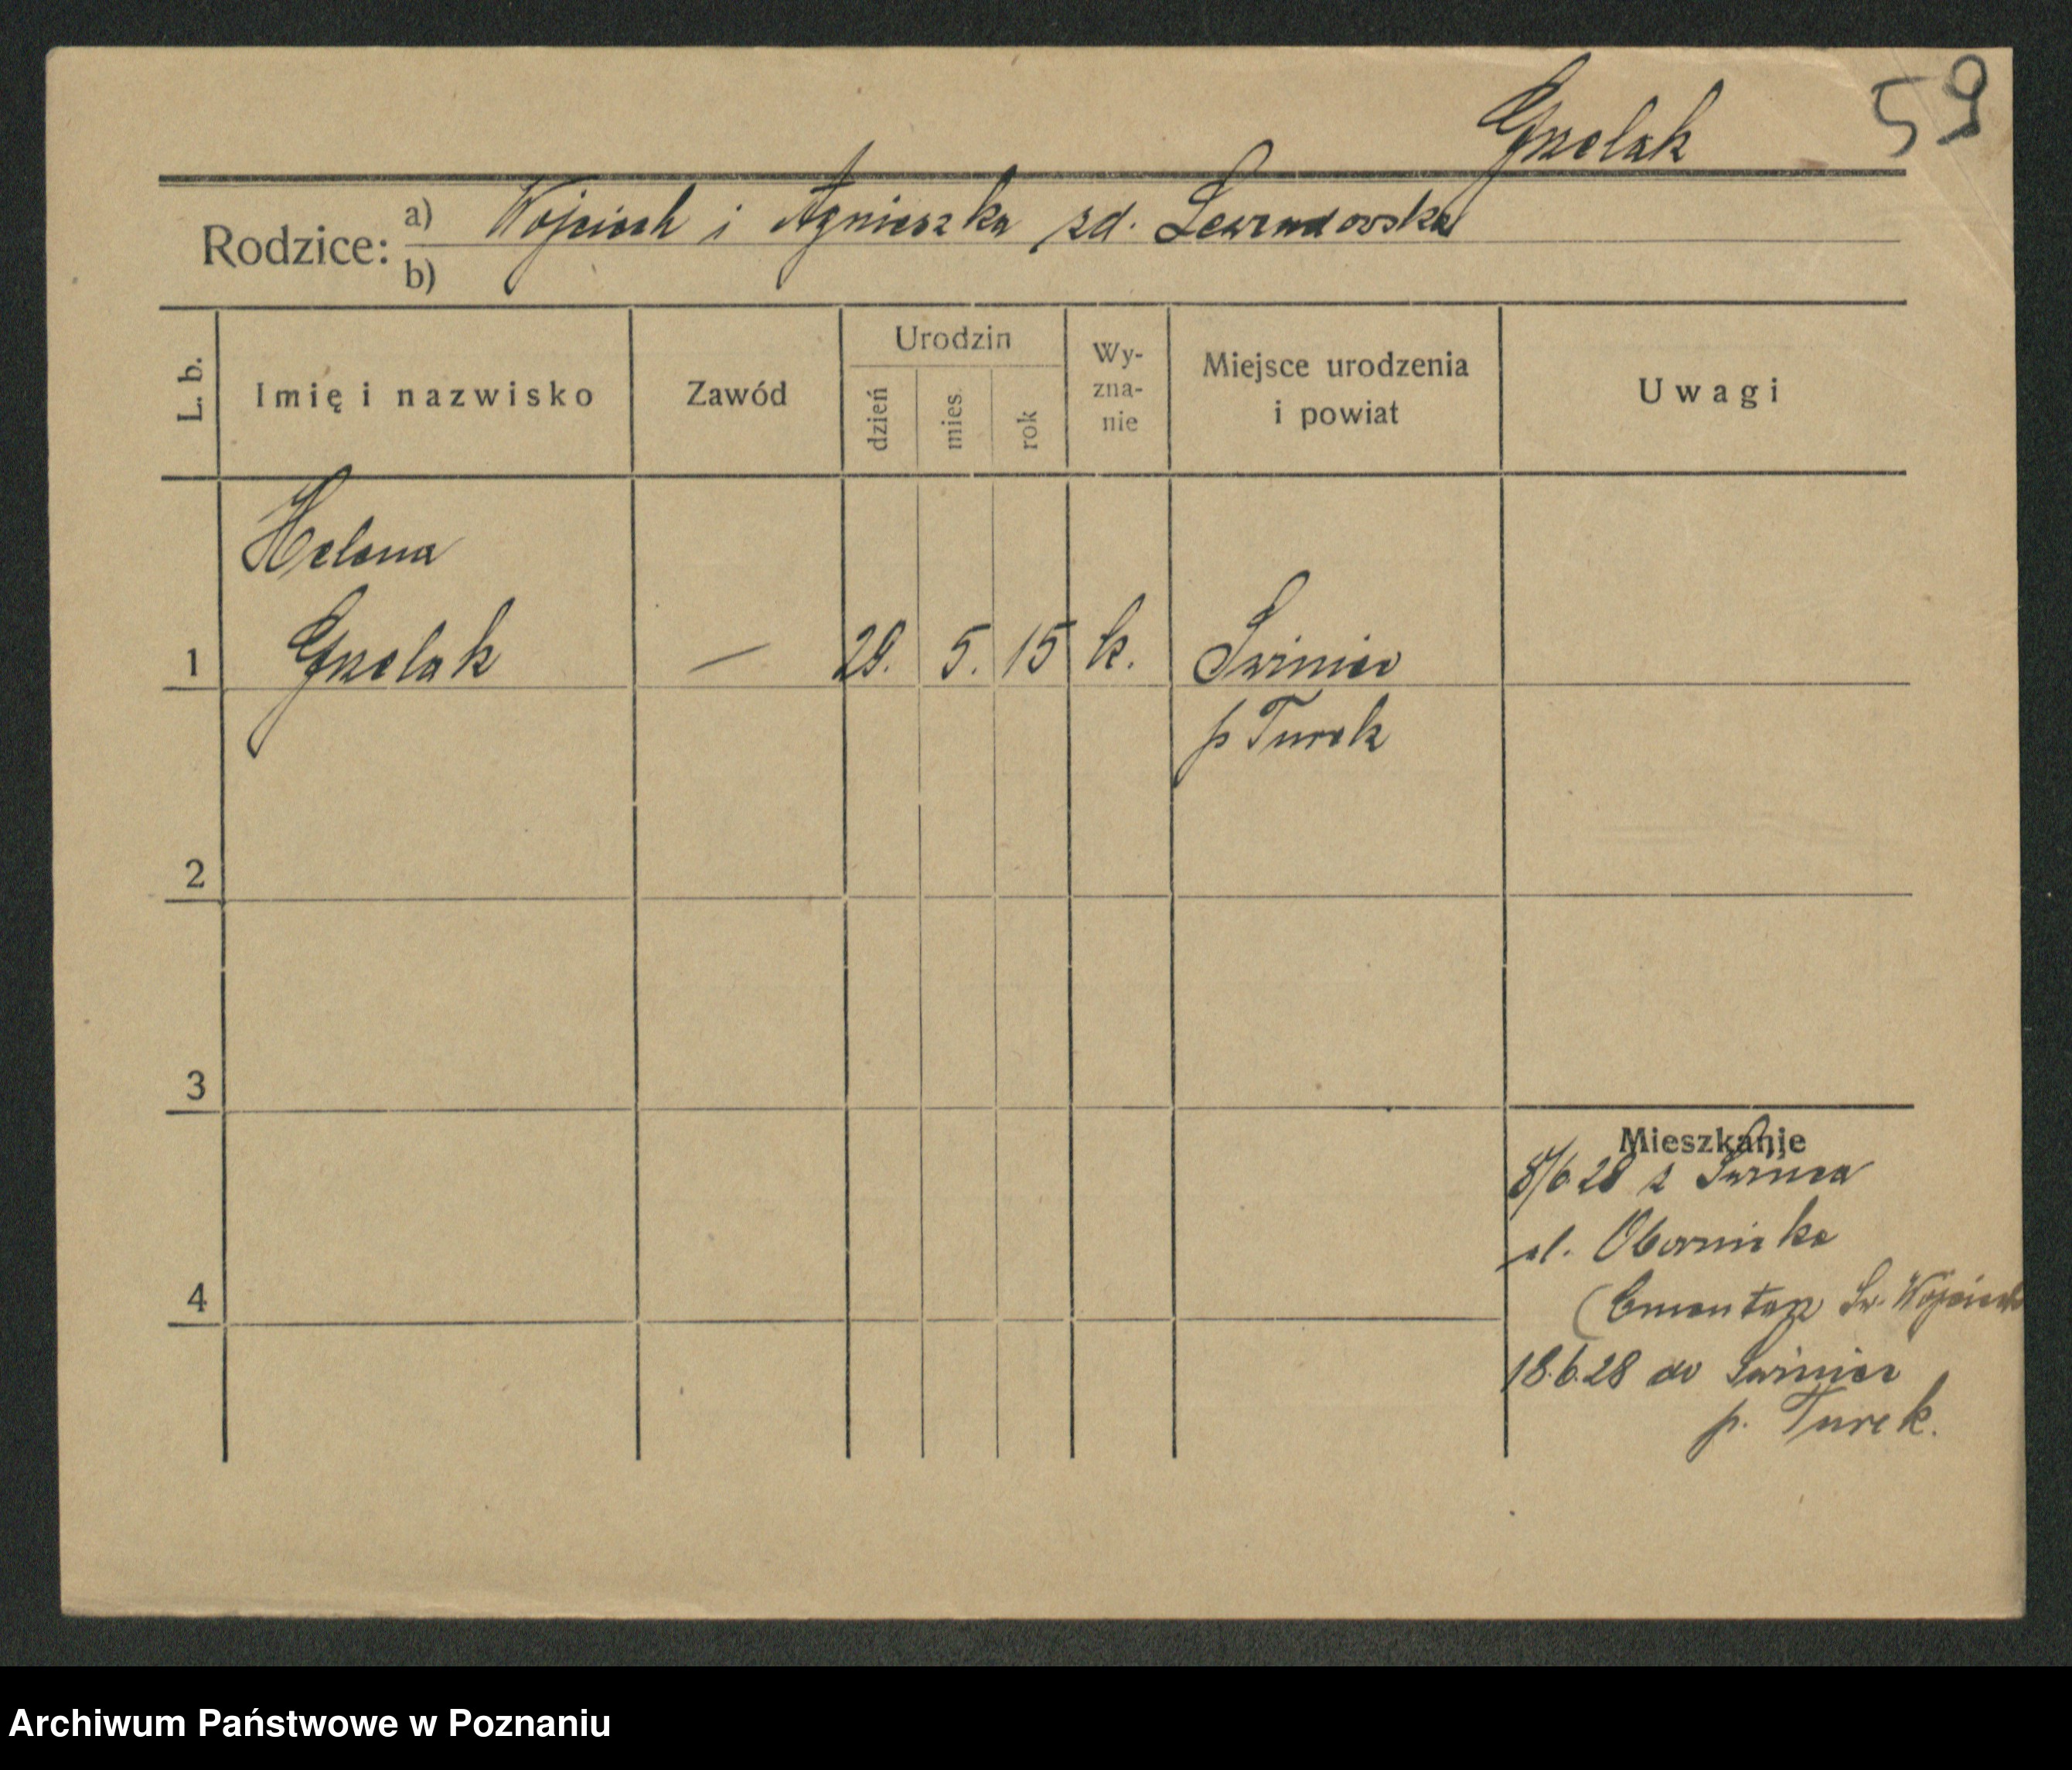 59
Grzelak
Rodzice: a) Wojciech i Agnieszka zd. Lewandowska
b)
L. b.
Imię i nazwisko
Zawód
Urodzin
dzień
mies.
rok
Wy-
zna-
nie
Miejsce urodzenia
i powiat
Uwagi
Helena
1 Grzelak — 29. 5. 15 k. Świnice
p Turek
2
3
Mieszkanie
8/6 28 z Świnca
ul. Obornicka
4
(Cmentarz Św. Wojciech
18.6.28 do Świnice
p. Turek.
Archiwum Państwowe w Poznaniu